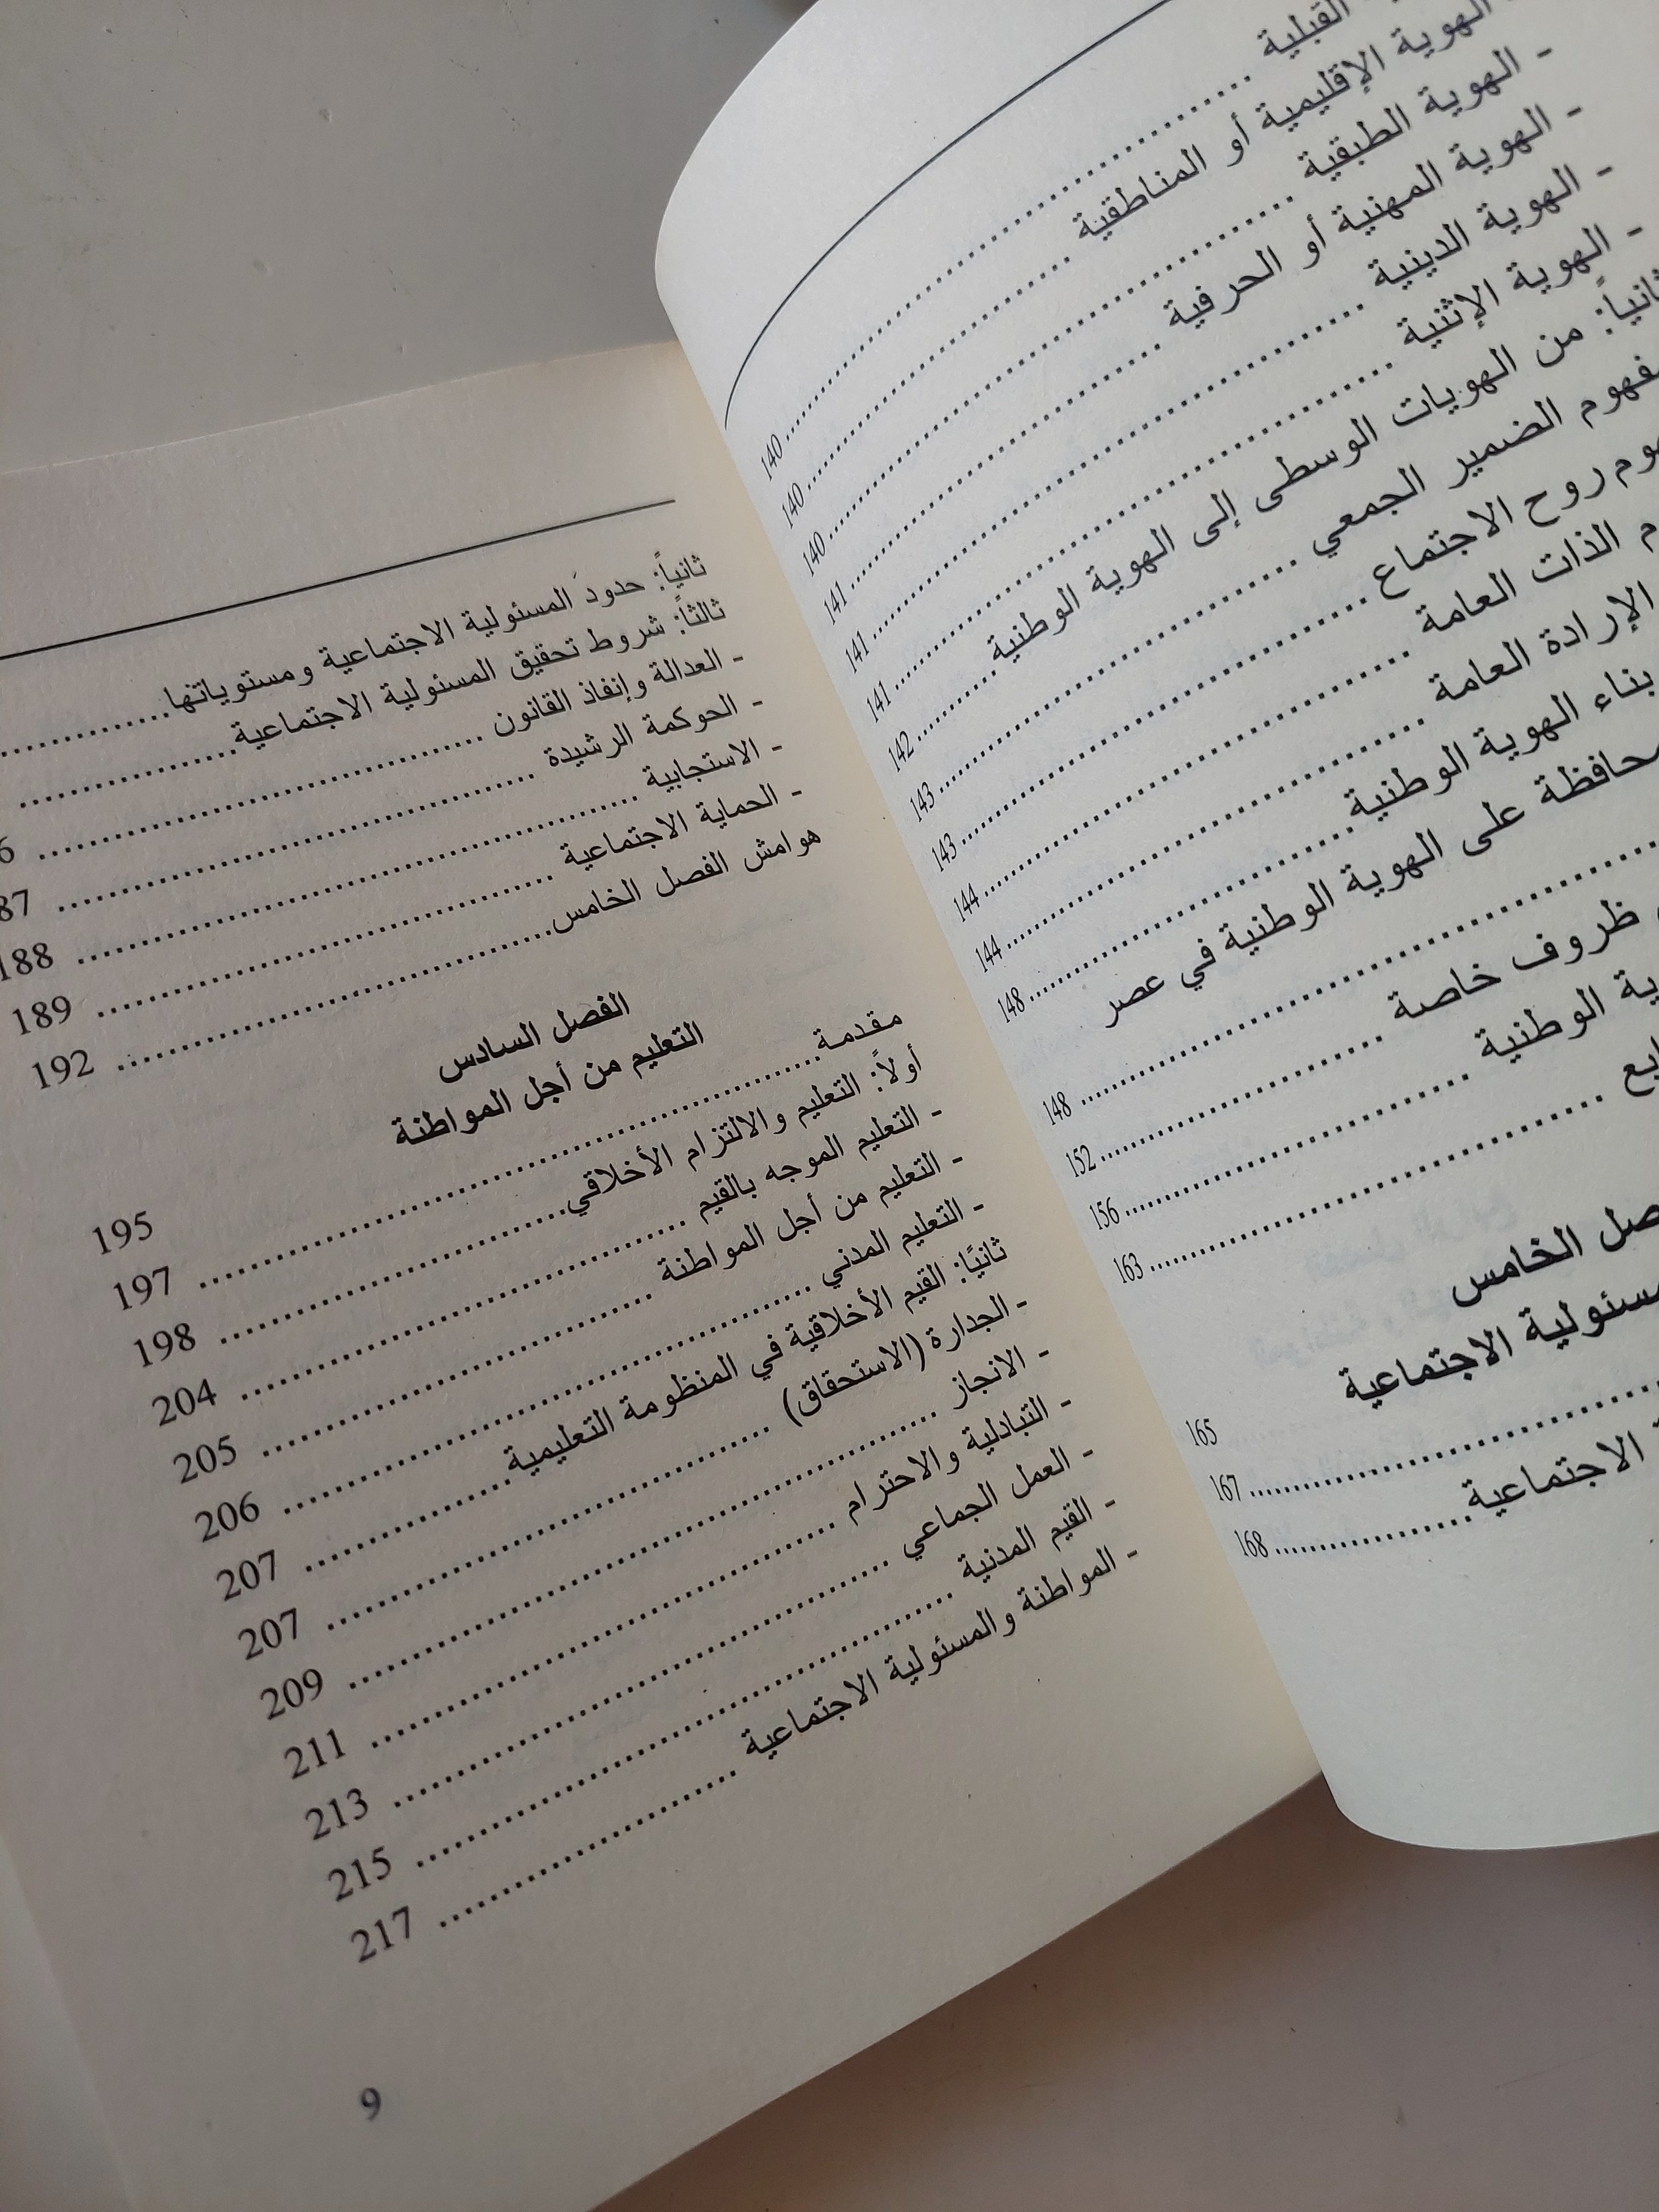 القبلية ........ 140
الهوية الإقليمية أو المناطقية ........ 140
- الهوية الطبقية ........ 140
- الهوية المهنية أو الحرفية ........ 141
- الهوية الدينية ........ 141
- الهوية الإثنية ........ 141
ثانياً: من الهويات الوسطى إلى الهوية الوطنية ........ 142
الضمير الجمعي ........ 143
روح الاجتماع ........ 143
الذات العامة ........ 144
الإرادة العامة ........ 144
بناء الهوية الوطنية ........ 148
على الهوية الوطنية في عصر
........ 148
ظروف خاصة ........ 152
الوطنية ........ 156
........ 163
الخامس
الاجتماعية
165
........ 167
الاجتماعية ........ 168
ثانياً: حدود المسئولية الاجتماعية ومستوياتها ........
ثالثاً: شروط تحقيق المسئولية الاجتماعية ........
- العدالة وإنفاذ القانون ........ 6
- الحوكمة الرشيدة ........ 87
- الاستجابية ........ 188
- الحماية الاجتماعية ........ 189
هوامش الفصل الخامس ........ 192
الفصل السادس
التعليم من أجل المواطنة
195
مقدمة ........ 197
أولاً: التعليم والالتزام الأخلاقي ........ 198
- التعليم الموجه بالقيم ........ 204
- التعليم من أجل المواطنة ........ 205
- التعليم المدني ........ 206
ثانيًا: القيم الأخلاقية في المنظومة التعليمية ........ 207
- الجدارة (الاستحقاق) ........ 207
- الانجاز ........ 209
- التبادلية والاحترام ........ 211
- العمل الجماعي ........ 213
- القيم المدنية ........ 215
- المواطنة والمسئولية الاجتماعية ........ 217
9